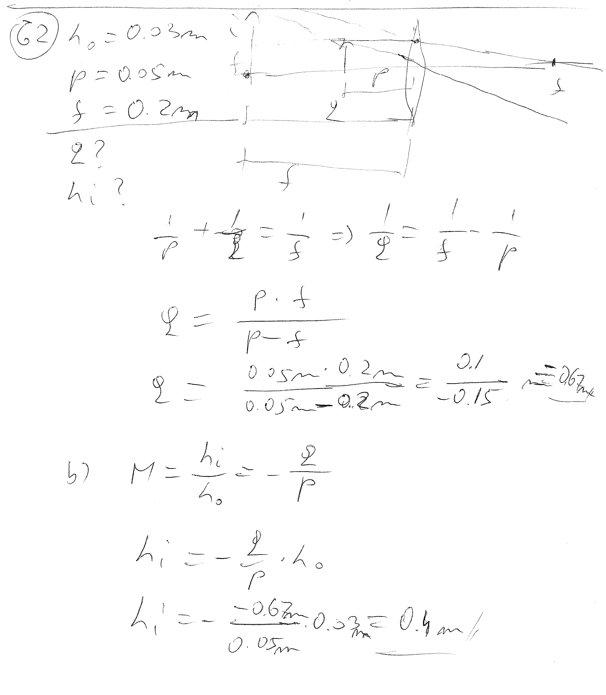 62 h₀ = 0.03m
p = 0.05m
f = 0.2m
q?
hi?
p
f
q
f
1/p + 1/q = 1/f => 1/q = 1/f - 1/p
q = p · f / p - f
q = 0.05m · 0.2m / 0.05m - 0.2m = 0.1 / -0.15 m = -0.67m
b) M = hi/h₀ = - q/p
hi = - q/p · h₀
hi = - -0.67m / 0.05m · 0.03m = 0.4m